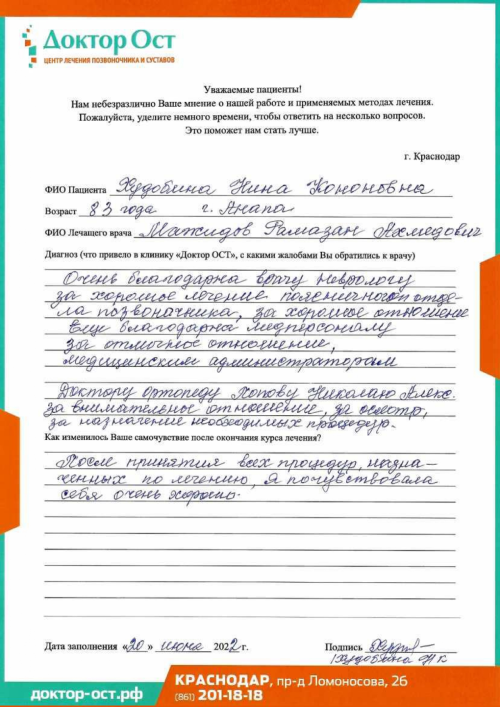 Доктор Ост
ЦЕНТР ЛЕЧЕНИЯ ПОЗВОНОЧНИКА И СУСТАВОВ
Уважаемые пациенты!
Нам небезразлично Ваше мнение о нашей работе и применяемых методах лечения.
Пожалуйста, уделите немного времени, чтобы ответить на несколько вопросов.
Это поможет нам стать лучше.
г. Краснодар
ФИО Пациента Худобина Нина Кононовна
Возраст 83 года г. Анапа
ФИО Лечащего врача Мажидов Рамазан Ахмедович
Диагноз (что привело в клинику «Доктор ОСТ», с какими жалобами Вы обратились к врачу)
Очень благодарна врачу неврологу
за хорошее лечение поясничного отде-
ла позвоночника, за хорошее отношение
Еще благодарна медперсоналу
за отличное отношение,
медицинским администраторам
Доктору ортопеду Попову Николаю Алекс.
за внимательное отношение, за осмотр,
за назначение необходимых процедур.
Как изменилось Ваше самочувствие после окончания курса лечения?
После принятия всех процедур, назна-
ченных по лечению, я почувствовала
себя очень хорошо.
Дата заполнения «20» июня 2022 г. Подпись
Худобина Н К
доктор-ост.рф
КРАСНОДАР, пр-д Ломоносова, 26
(861) 201-18-18